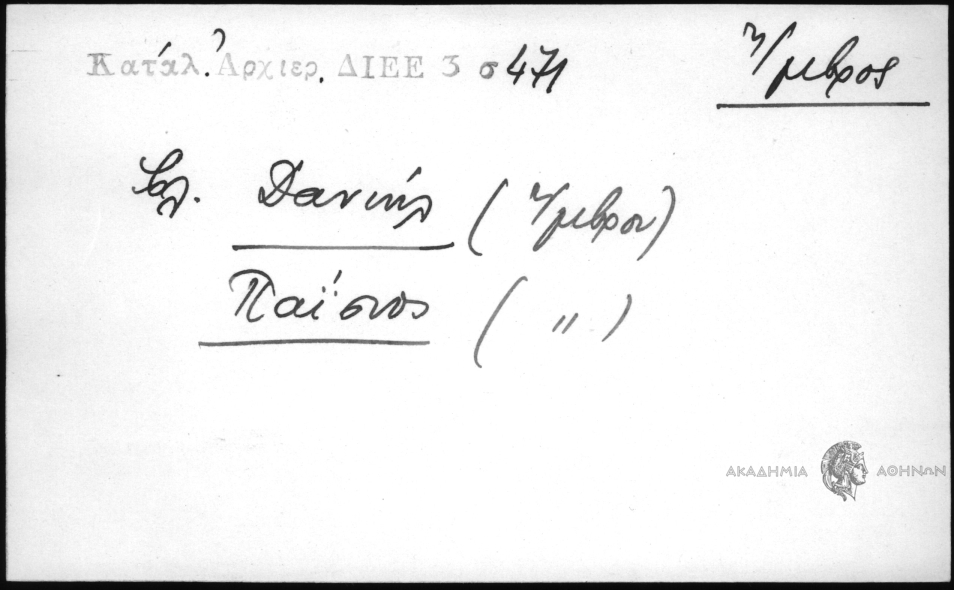 Κατάλ. Ἀρχιερ. ΔΙΕΕ 3 σ 471
Ἴμβρος
βλ. Δανιήλ (Ἴμβρου)
Παΐσιος ( " )
ΑΚΑΔΗΜΙΑ ΑΘΗΝΩΝ